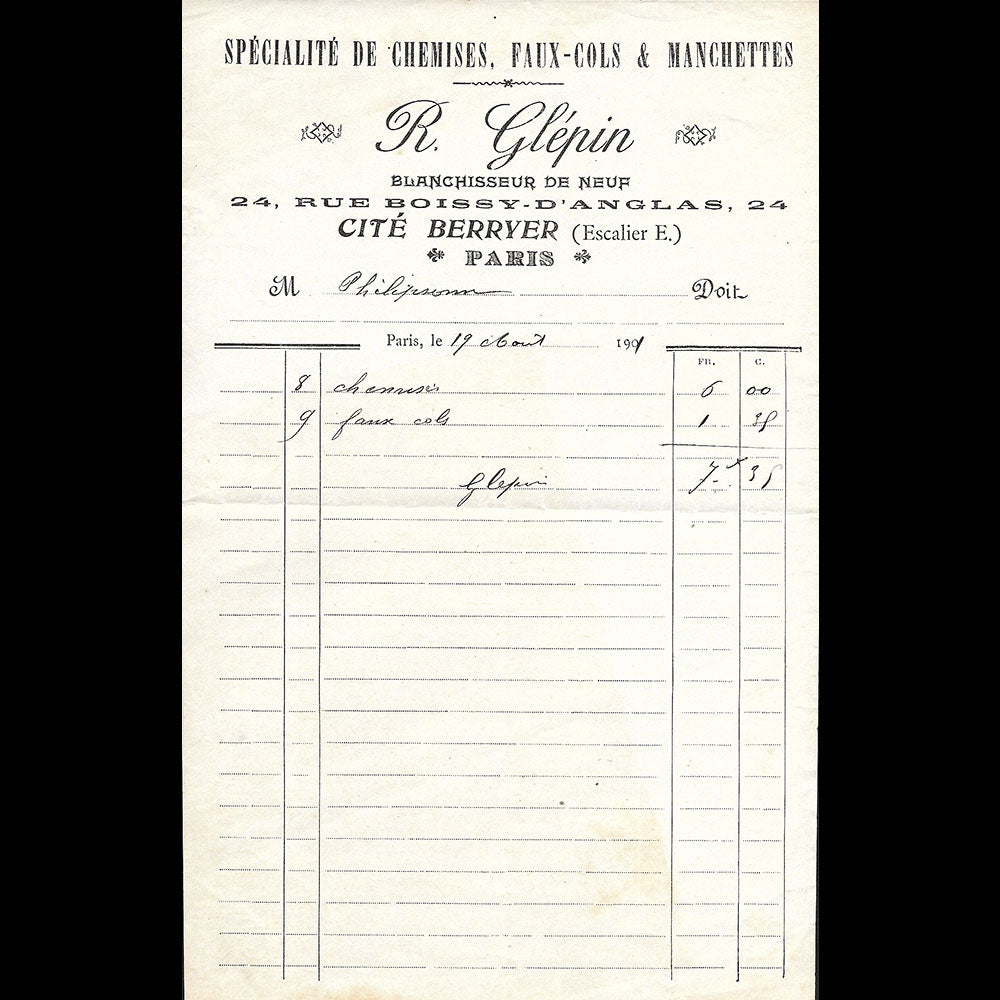 SPÉCIALITÉ DE CHEMISES, FAUX-COLS & MANCHETTES
R. Glépin
BLANCHISSEUR DE NEUF
24, RUE BOISSY-D'ANGLAS, 24
CITÉ BERRYER (Escalier E.)
PARIS
M Philipsonn Doit
Paris, le 19 Aout 1901
FR. C.
8 chemises 6 00
9 faux cols 1 35
Glepin 7 35